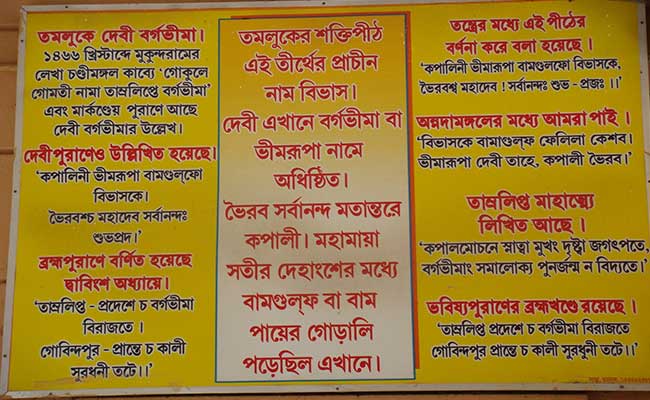 তমলুকে দেবী বর্গভীমা।
১৪৬৬ খ্রিস্টাব্দে মুকুন্দরামের
লেখা চণ্ডীমঙ্গল কাব্যে ‘গোকুলে
গোমতী নামা তাম্রলিপ্তে বর্গভীমা’
এবং মার্কণ্ডেয় পুরাণে আছে
দেবী বর্গভীমার উল্লেখ।
দেবীপুরাণেও উল্লিখিত হয়েছে।
‘কপালিনী ভীমরূপা বামগুল্‌ফো
বিভাসকে।
ভৈরবশ্চ মহাদেব সর্বানন্দঃ
শুভপ্রদ।’
ব্রহ্মপুরাণে বর্ণিত হয়েছে
দ্বাবিংশ অধ্যায়ে।
‘তাম্রলিপ্ত - প্রদেশে চ বর্গভীমা
বিরাজতে ।
গোবিন্দপুর - প্রান্তে চ কালী
সুরধনী তটে।।’
তমলুকের শক্তিপীঠ
এই তীর্থের প্রাচীন
নাম বিভাস।
দেবী এখানে বর্গভীমা বা
ভীমরূপা নামে
অধিষ্ঠিত।
ভৈরব সর্বানন্দ মতান্তরে
কপালী। মহামায়া
সতীর দেহাংশের মধ্যে
বামগুল্‌ফ বা বাম
পায়ের গোড়ালি
পড়েছিল এখানে।
তন্ত্রের মধ্যে এই পীঠের
বর্ণনা করে বলা হয়েছে ।
‘কপালিনী ভীমারূপা বামগুল্‌ফো বিভাসকে,
ভৈরবশ্ব মহাদেব ! সর্বানন্দঃ শুভ - প্রজঃ ।।’
অন্নদামঙ্গলের মধ্যে আমরা পাই ।
‘বিভাসকে বামাগুল্‌ফ ফেলিলা কেশব।
ভীমারূপা দেবী তাহে, কপালী ভৈরব।’
তাম্রলিপ্ত মাহাত্ম্যে
লিখিত আছে ।
‘কপালমোচনে স্নাত্বা মুখং দৃষ্ট্বা জগৎপতে,
বর্গভীমাং সমালোক্য পুনর্জন্ম ন বিদ্যতে।’
ভবিষ্যপুরাণের ব্রহ্মখণ্ডে রয়েছে ।
‘তাম্রলিপ্ত প্রদেশে চ বর্গভীমা বিরাজতে
গোবিন্দপুর প্রান্তে চ কালী সুরধুনী তটে।।’